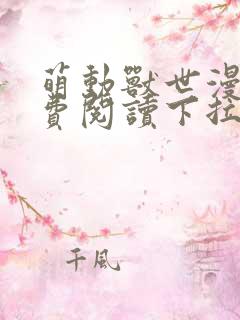 萌動獸世漫
費閱讀下拉
千風